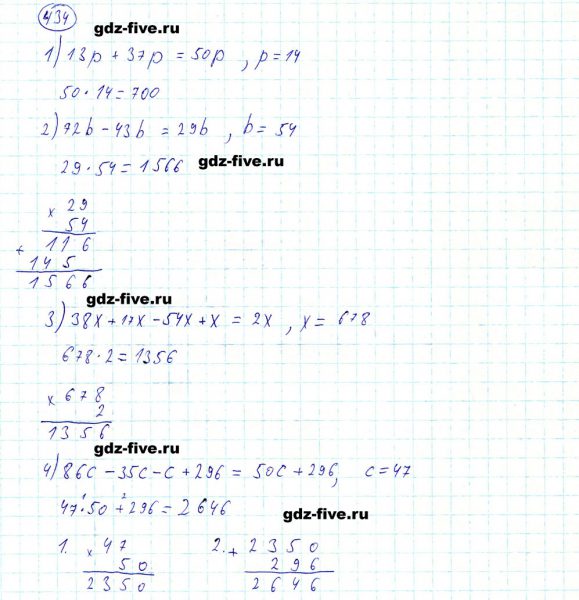 434
gdz-five.ru
1) 13p + 37p = 50p , p = 14
50 · 14 = 700
2) 72b - 43b = 29b , b = 54
29 · 54 = 1566 gdz-five.ru
× 29
54
+ 116
145
1566
gdz-five.ru
3) 38x + 17x - 54x + x = 2x , x = 678
678 · 2 = 1356
× 678
2
1356
gdz-five.ru
4) 86c - 35c - c + 296 = 50c + 296, c = 47
47 · 50 + 296 = 2646
1 2
gdz-five.ru
1. × 47 2. + 2350
50 296
2350 2646